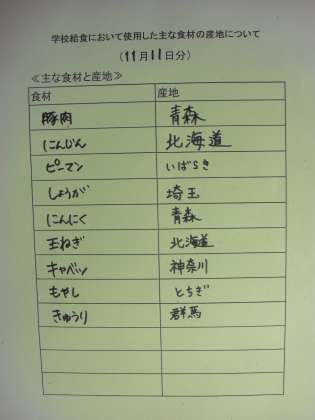 学校給食において使用した主な食材の産地について
(11月11日分)
≪主な食材と産地≫
食材 産地
豚肉 青森
にんじん 北海道
ピーマン いばらき
しょうが 埼玉
にんにく 青森
玉ねぎ 北海道
キャベツ 神奈川
もやし とちぎ
きゅうり 群馬